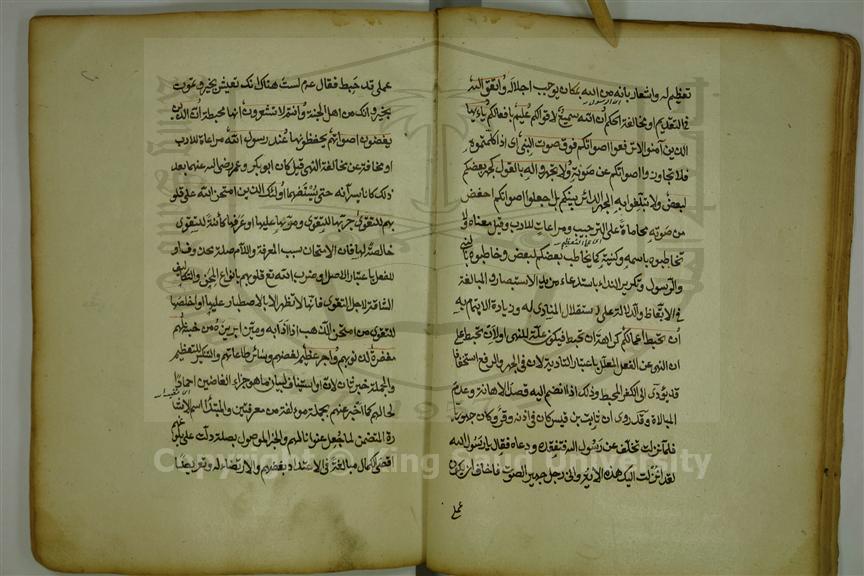 تعظيم له واشعار بانه من الله بمكان يوجب اجلاله واتقوا الله
في التقديم او مخالفة الحكم ان الله سميع لاقوالكم عليم بافعالكم يا ايها
الذين آمنوا لا ترفعوا اصواتكم فوق صوت النبي اي اذا كلمتموه
فلا تجاوزوا اصواتكم عن صوته ولا تجهروا له بالقول كجهر بعضكم
لبعض ولا تبلغوا به الجهر الدائر بينكم بل اجعلوا اصواتكم اخفض
من صوته محاماة على الترحيب ومراعات للادب وقيل معناه ولا
تخاطبوه باسمه وكنيته كما يخاطب بعضكم لبعض وخاطبوه بالنبي
والرسول وتكرير النداء لاستدعاء مزيد الاستبصار والمبالغة
في الاتعاظ والدلالة على استقلال المنادى له وزيادة الاهتمام به
ان تحبط اعمالكم كراهة ان تحبط فيكون علة للنهي او لان تحبط على
ان النهي عن الفعل المعلل باعتبار التادية لان في الجهر والرفع استخفافا
قد يؤدي الى الكفر المحبط وذلك اذا انضم اليه قصد الاهانة وعدم
المبالاة وقد روى ان ثابت بن قيس كان في اذنه وقر وكان جهوريا
فلما نزلت تخلف عن رسول الله فتفقده ودعاه فقال يا رسول الله
لقد انزلت اليك هذه الاية واني رجل جهير الصوت فاخاف ان يكون
عملي
عملي قد حبط فقال عم لست هناك انك تعيش بخير وتموت
بخير وانك من اهل الجنة وانتم لا تشعرون انها محبطة ان الذين
يغضون اصواتهم يخفضونها عند رسول الله مراعاة للادب
او مخافة عن مخالفة النهي قيل كان ابو بكر وعمر رضي الله عنهما بعد
ذلك كانا يسرانه حتى يستفهمهما اولئك الذين امتحن الله قلو
بهم للتقوى جربها للتقوى ومرنها عليها او عرفها كائنة للتقوى
خالصة لها فان الامتحان سبب المعرفة واللام صلة محذوف او
للفعل باعتبار الاصل او ضرب الله قلوبهم بانواع المحن والتكاليف
الشاقة لاجل التقوى فانها لا تظهر الا بالاصطبار عليها او اخلصها
للتقوى من امتحن الذهب اذا اذابه وميز ابريزه من خبثه لهم
مغفرة لذنوبهم واجر عظيم لغضهم وسائر طاعاتهم والتنكير للتعظيم
والجملة خبر ثان لان او استيناف لبيان ما هو جزاء الغاضين احمادا
لحالهم كما اخبر عنهم بجملة مؤلفة من معرفتين والمبتدأ اسم الاشا
رة المتضمن لما جعل عنوانا لهم والخبر الموصول بصلة دلت على بلوغهم
اقصى الكمال مبالغة في الاعتداد بغضهم والارتضاء له وتعريضا
Copyright © King Saud University